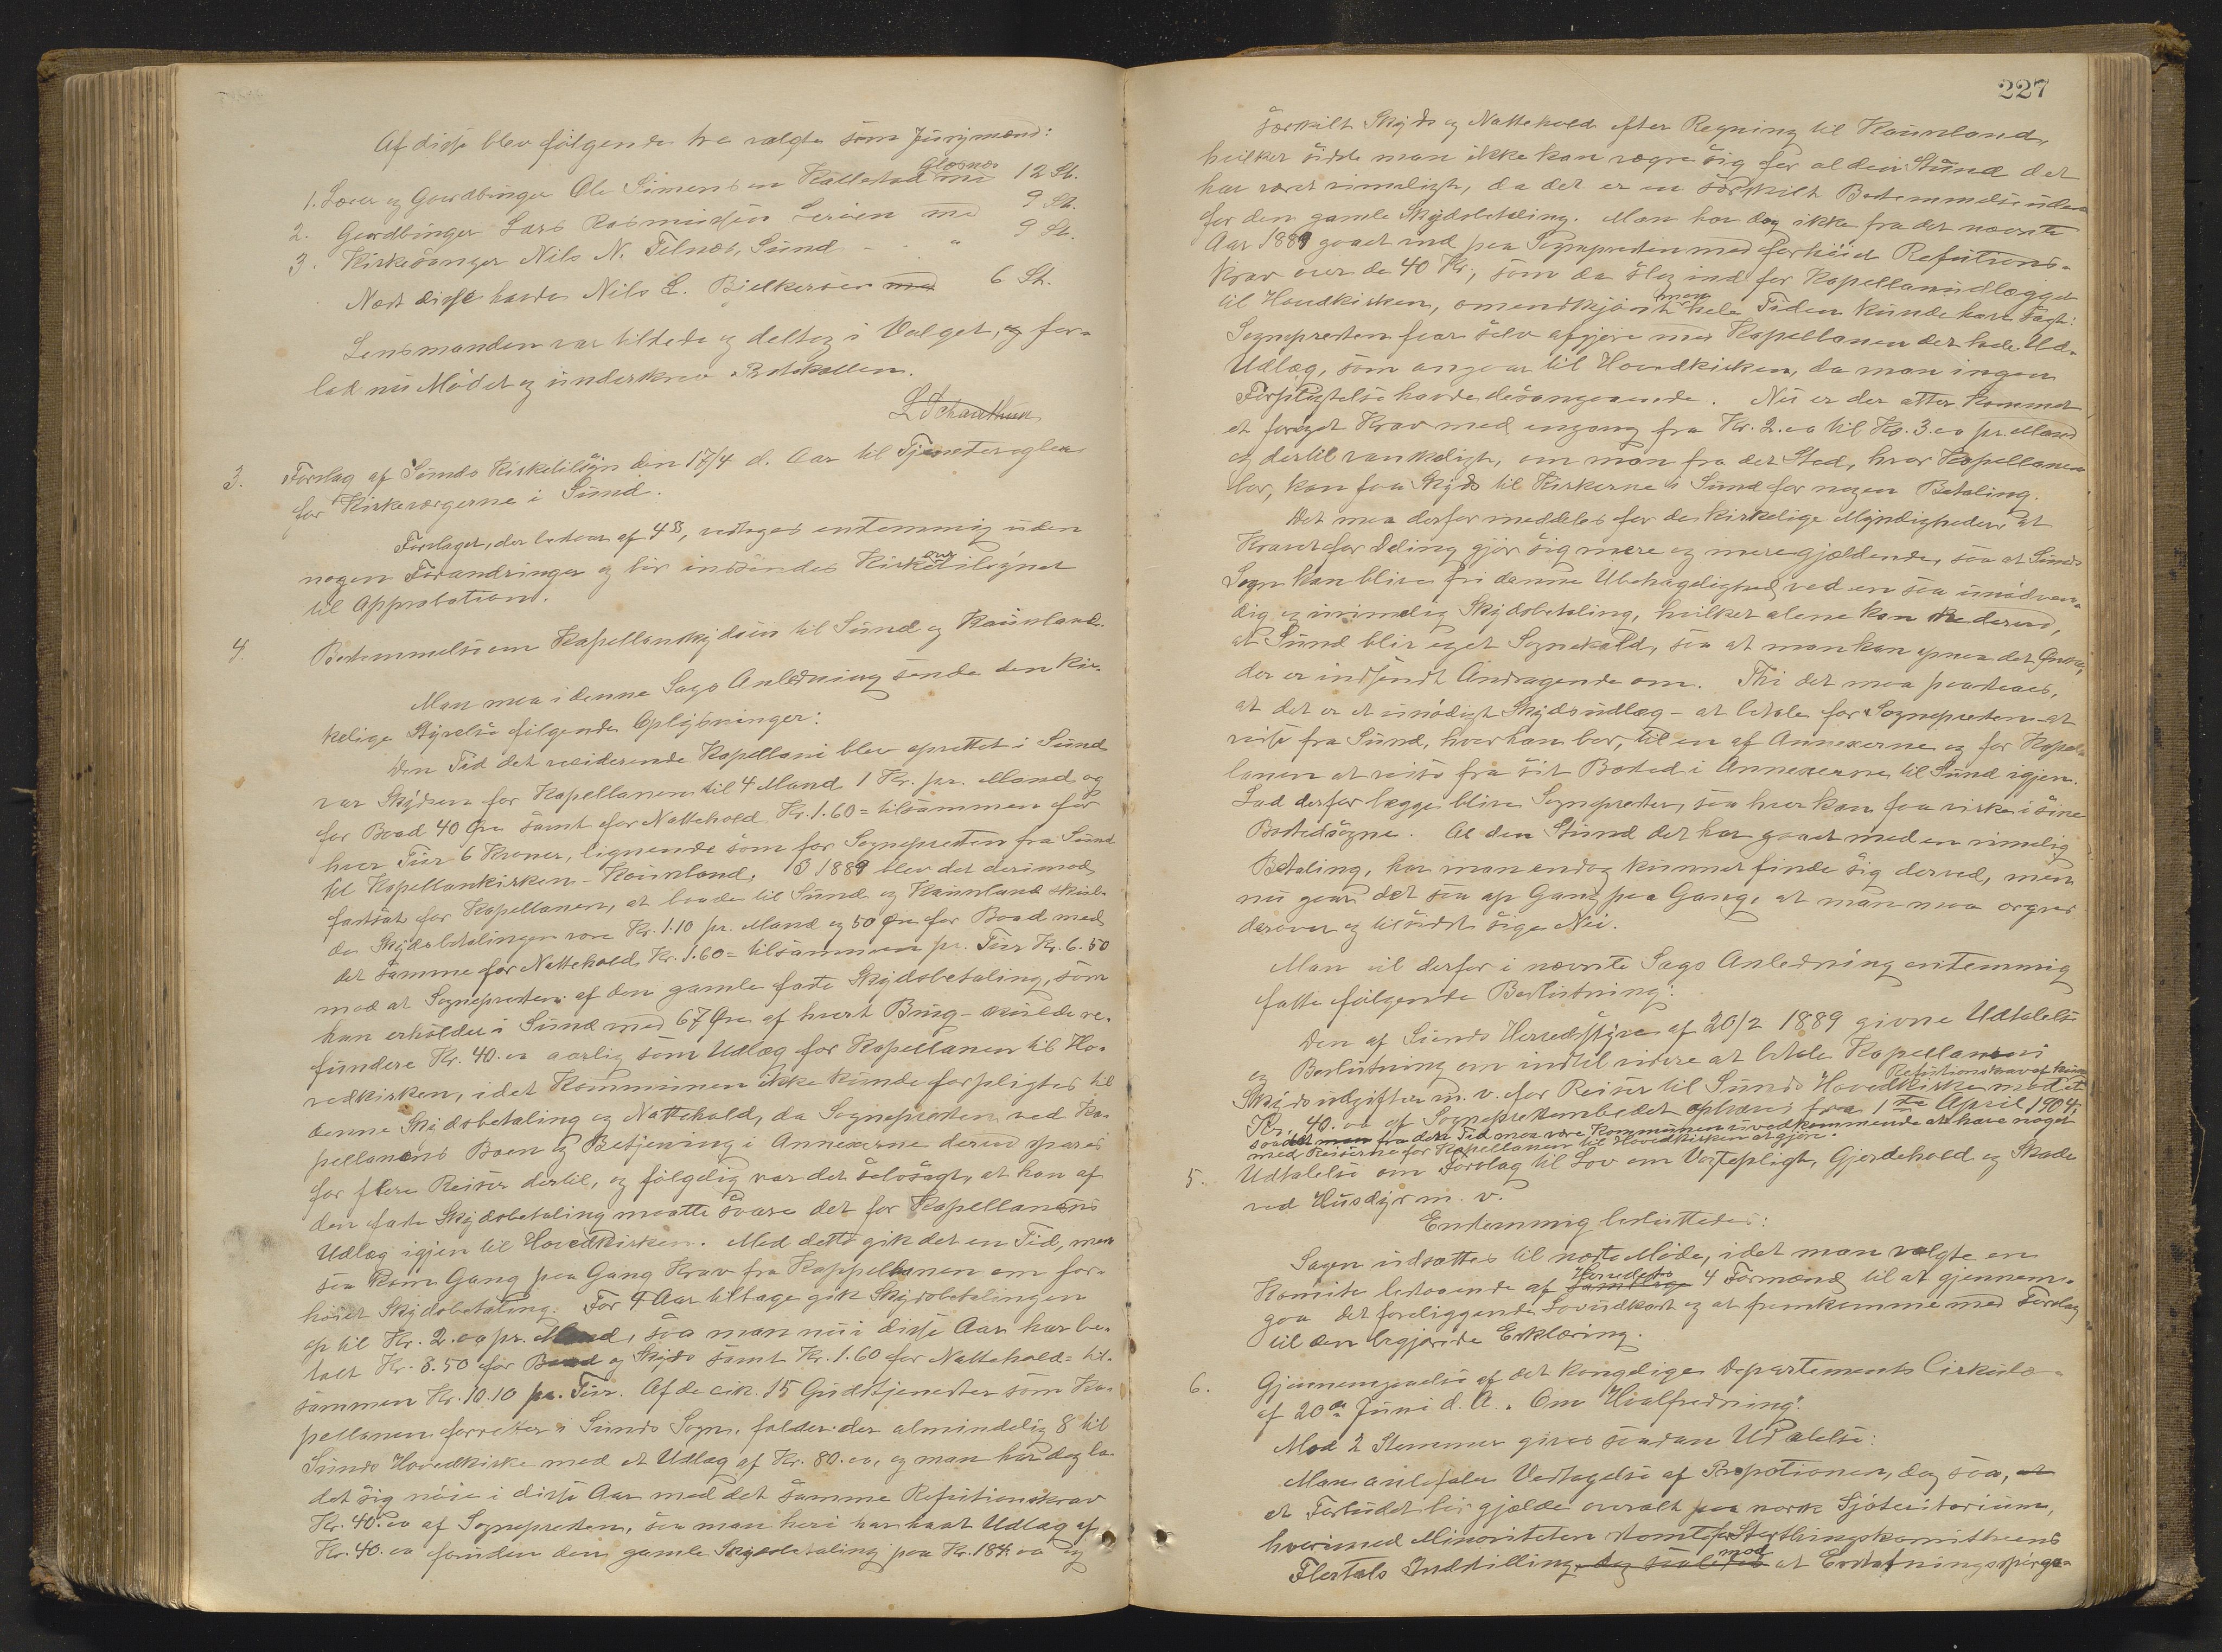 Af disse blev følgende tre valgte som Jurymænd:
1. Lærer og Gaardbruger Ole Simonsen Kallestad Glesnæs med 12 St.
2. Gaardbruger Lars Rasmussen Lerøen med 9 St.
3. Kirkesanger Nils N. Telnæs, Sund - " 9 St.
Næst disse havde Nils L. Bjelkerøen med 6 St.
Lensmanden var tilstede og deltog i Valget, og for-
lod nu Mødet og underskrev Protokollen.
L Schanthun
3. Forslag af Sunds Kirketilsyn den 17/4 d. Aar til Tjenesteregler
for Kirkeværgerne i Sund.
Forslaget, der bestaar af 4 §§, vedtoges enstemmig uden
nogen Forandringer og bør indsendes Kirkeovertilsynet
til Approbation.
4. Bestemmelse om Kapellanskydsen til Sund og Kausland.
Man maa i denne Sags Anledning sende den kir-
kelige Styrelse følgende Oplysninger:
Den Tid det residerende Kapellani blev oprettet i Sund
var Skydsen for Kapellanen til 4 Mand 1 Kr. pr. Mand og
for Baad 40 Øre samt for Nattehold Kr. 1.60 = tilsammen for
hver Tur 6 Kroner, lignende som for Sognepresten fra Sund
til Kapellankirken - Kausland. I 1889 blev det derimod
fastsat for Kapellanen, at baade til Sund og Kausland skul-
de Skydsbetalingen være Kr. 1.10 pr. Mand og 50 Øre for Baad med
det samme for Nattehold Kr. 1.60 = tilsammen pr. Tur Kr. 6.50
mod at Sognepresten af den gamle faste Skydsbetaling, som
han erholder i Sund med 67 Øre af hvert Brug - skulde re-
fundere Kr. 40.00 aarlig som Udlæg for Kapellanen til Ho-
vedkirken, idet Kommunen ikke kunde forpligtes til
denne Skydsbetaling og Nattehold, da Sognepresten ved Ka-
pellanens Boen og Betjening i Annexerne derved spares
for flere Reiser dertil, og følgelig var det selvsagt, at han af
den faste Skydsbetaling maatte svare det for Kapellanens
Udlæg igjen til Hovedkirken. Med dette gik det en Tid, men
saa kom Gang paa Gang Krav fra Kappellanen om for-
høiet Skydsbetaling. For 4 Aar tilbage gik Skydsbetalingen
op til Kr. 2.00 pr. Mand, saa man nu i disse Aar har be-
talt Kr. 8.50 for Baad og Skyds samt Kr. 1.60 for Nattehold = til-
sammen Kr. 10.10 pr. Tur. Af de cik. 15 Gudstjenester som Ka-
pellanen forretter i Sunds Sogn, falder der almindelig 8 til
Sunds Hovedkirke med et Udlæg af Kr. 80.00, og man har dog la-
det sig nøie i disse Aar med det samme Refutionskrav
Kr. 40.00 af Sognepresten, saa man heri har havt Udlæg af
Kr. 40.00 foruden den gamle Skydsbetaling paa Kr. 184.00 og
227
særskilt Skyds og Nattehold efter Regning til Kausland,
hvilket sidste man ikke kan vægre sig for al den Stund det
har været rimeligt, da det er en særskilt Bestemmelse uden-
for den gamle Skydsbetaling. Man har dog ikke fra det nævnte
Aar 1889 gaaet ind paa Sognepresten med forhøiet Refutions-
krav over de 40 Kr., som da slog ind for Kapellanudlægget
til Hovedkirken, omendskjønt man hele Tiden kunde have sagt:
Sognepresten faar selv afgjøre med Kapellanen det hele Ud-
Udlæg, som angaar til Hovedkirken, da man ingen
Forpligtelse havde desangaaende. Nu er der atter kommet
et forøget Krav med engang fra Kr. 2.00 til Kr. 3.00 pr. Mand
og dertil vanskeligt, om man fra det Sted, hvor Kapellanen
bor, kan faa Skyds til Kirkerne i Sund for nogen Betaling.
Det maa derfor meddeles for de kirkelige Myndigheder, at
Kravet for Deling gjør sig mere og mere gjældende, saa at Sunds
Sogn kan blive fri denne Ubehagelighed ved en saa unødven-
dig og urimelig Skydsbetaling, hvilket alene kan ske derved,
at Sund blir eget Sognekald, saa at man kan opnaa det Ønske,
der er indsendt Andragende om. Thi det maa paastaaes,
at det er et unødigt Skydsudlæg - at betale for Sognepresten at
reise fra Sund, hvor han bor, til en af Annexerne og for Kapel-
lanen at reise fra sit Bosted i Annexerne til Sund igjen.
Lad derfor begge blive Sogneprester, saa hver kan faa virke i sine
Bostedsogne. Al den Stund det har gaaet med en rimelig
Betaling, har man endog kunnet finde sig derved, men
nu gaar det saa op Gang paa Gang, at man maa ærgres
derover og tilsidst sige Nei.
Man vil derfor i nævnte Sags Anledning enstemmig
fatte følgende Beslutning:
Den af Sunds Herredsstyre af 20/2 1889 givne Udtalelse
og Beslutning om indtil videre at betale Kapellanens
Skydsudgifter m. v. for Reiser til Sunds Hovedkirke mod et Refutionskrav af
Kr. 40.00 af Sogneprestembedet ophæves fra 1ste April 1904,
saa det man fra den Tid maa være Kommunen uvedkommende at have noget
med Reiserne for Kapellanen til Hovedkirken at gjøre.
5. Udtalelse om Forslag til Lov om Vogtepligt, Gjerdehold og Skade
ved Husdyr m. v.
Enstemmig besluttedes:
Sagen udsættes til næste Møde, idet man valgte en
Komite bestaaende af samtlige Herredets 4 Formænd til at gjennem-
gaa det foreliggende Lovudkast og at fremkomme med Forslag
til den begjærede Erklæring.
6. Gjennemgaaelse af det kongelige Departements Cirkulæ-
af 20de Juni d. A. "Om Hvalfredning".
Mod 2 Stemmer gives saadan Udtalelse:
Man anbefaler Vedtagelse af Propotionen, dog saa, at
at Forbudet bør gjælde overalt paa norsk Sjøteritorium,
hvorimod Minoriteten stemte for Storthingskomiteens
Flertals Indstilling, dog saaledes mod at Erstatningsspørgs-